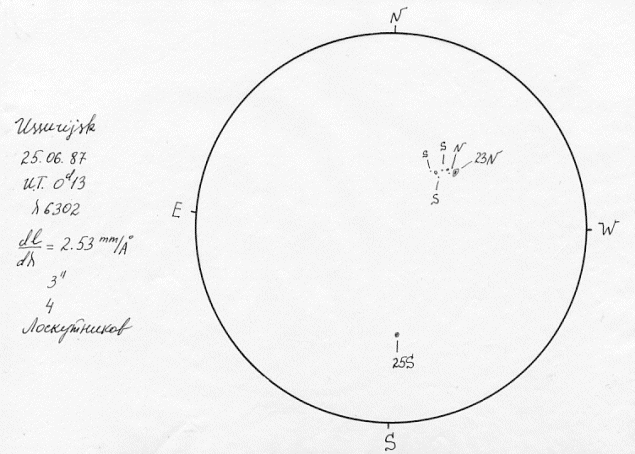 N
Ussurijsk
25.06.87
U.T. 0ᵈ13
λ 6302
dl/dλ = 2.53 mm/Å
3"
4
Лоскутников
S S N 23N
S
E
W
25S
S